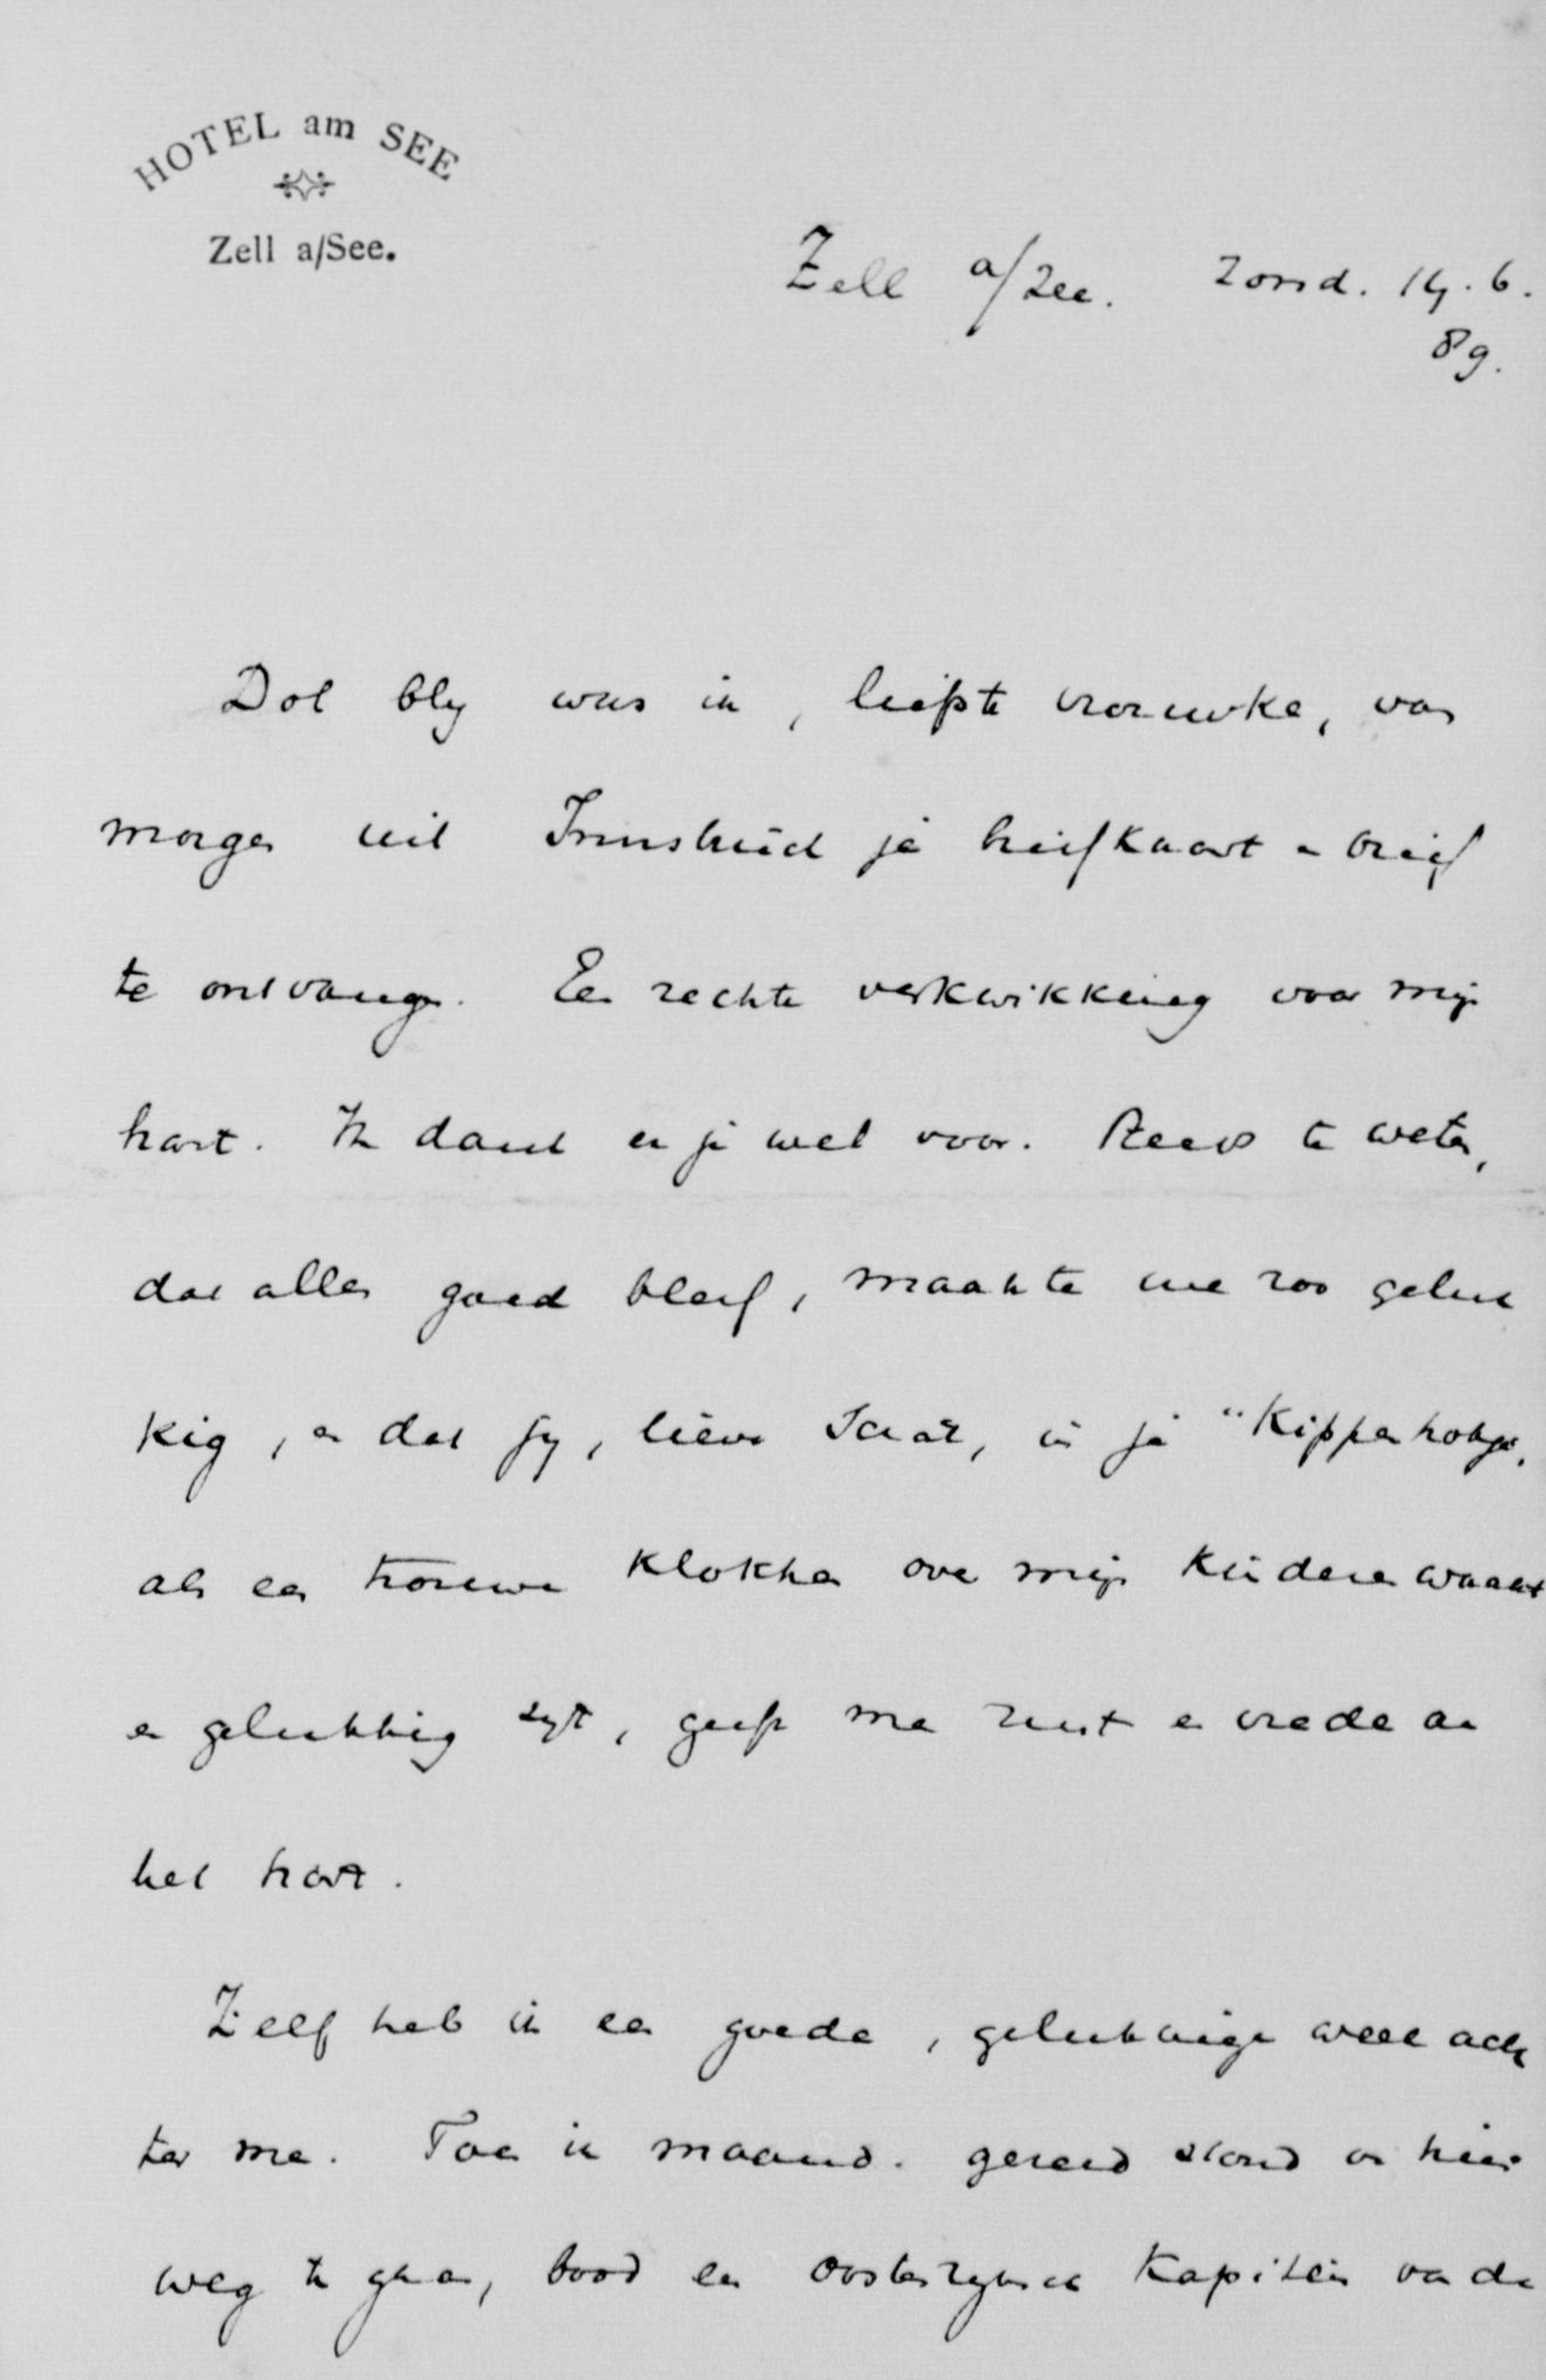 HOTEL am SEE
Zell a/See.
Zell a/Zee. Zond. 14.6.
89.
Dol bly was ik, liefste vrouwke, van
morgen uit Innsbrück je briefkaart en brief
te ontvangen. Een rechte verkwikking voor mijn
hart. Ik dank er je wel voor. Reeds te weten,
dat alles goed bleef, maakte me zoo geluk
kig, en dat jy, lieve Saar, in je "Kippenhokje,
als een trouwe Klokhen over mijn Kinderen waakt
en gelukkig zyt, geeft me rust en vrede aan
het hart.
Zelf heb ik een goede, gelukkige week ach
ter me. Toen ik maand. gereed stond om hier
weg te gaan, bood een Oostenryksch Kapitein van de